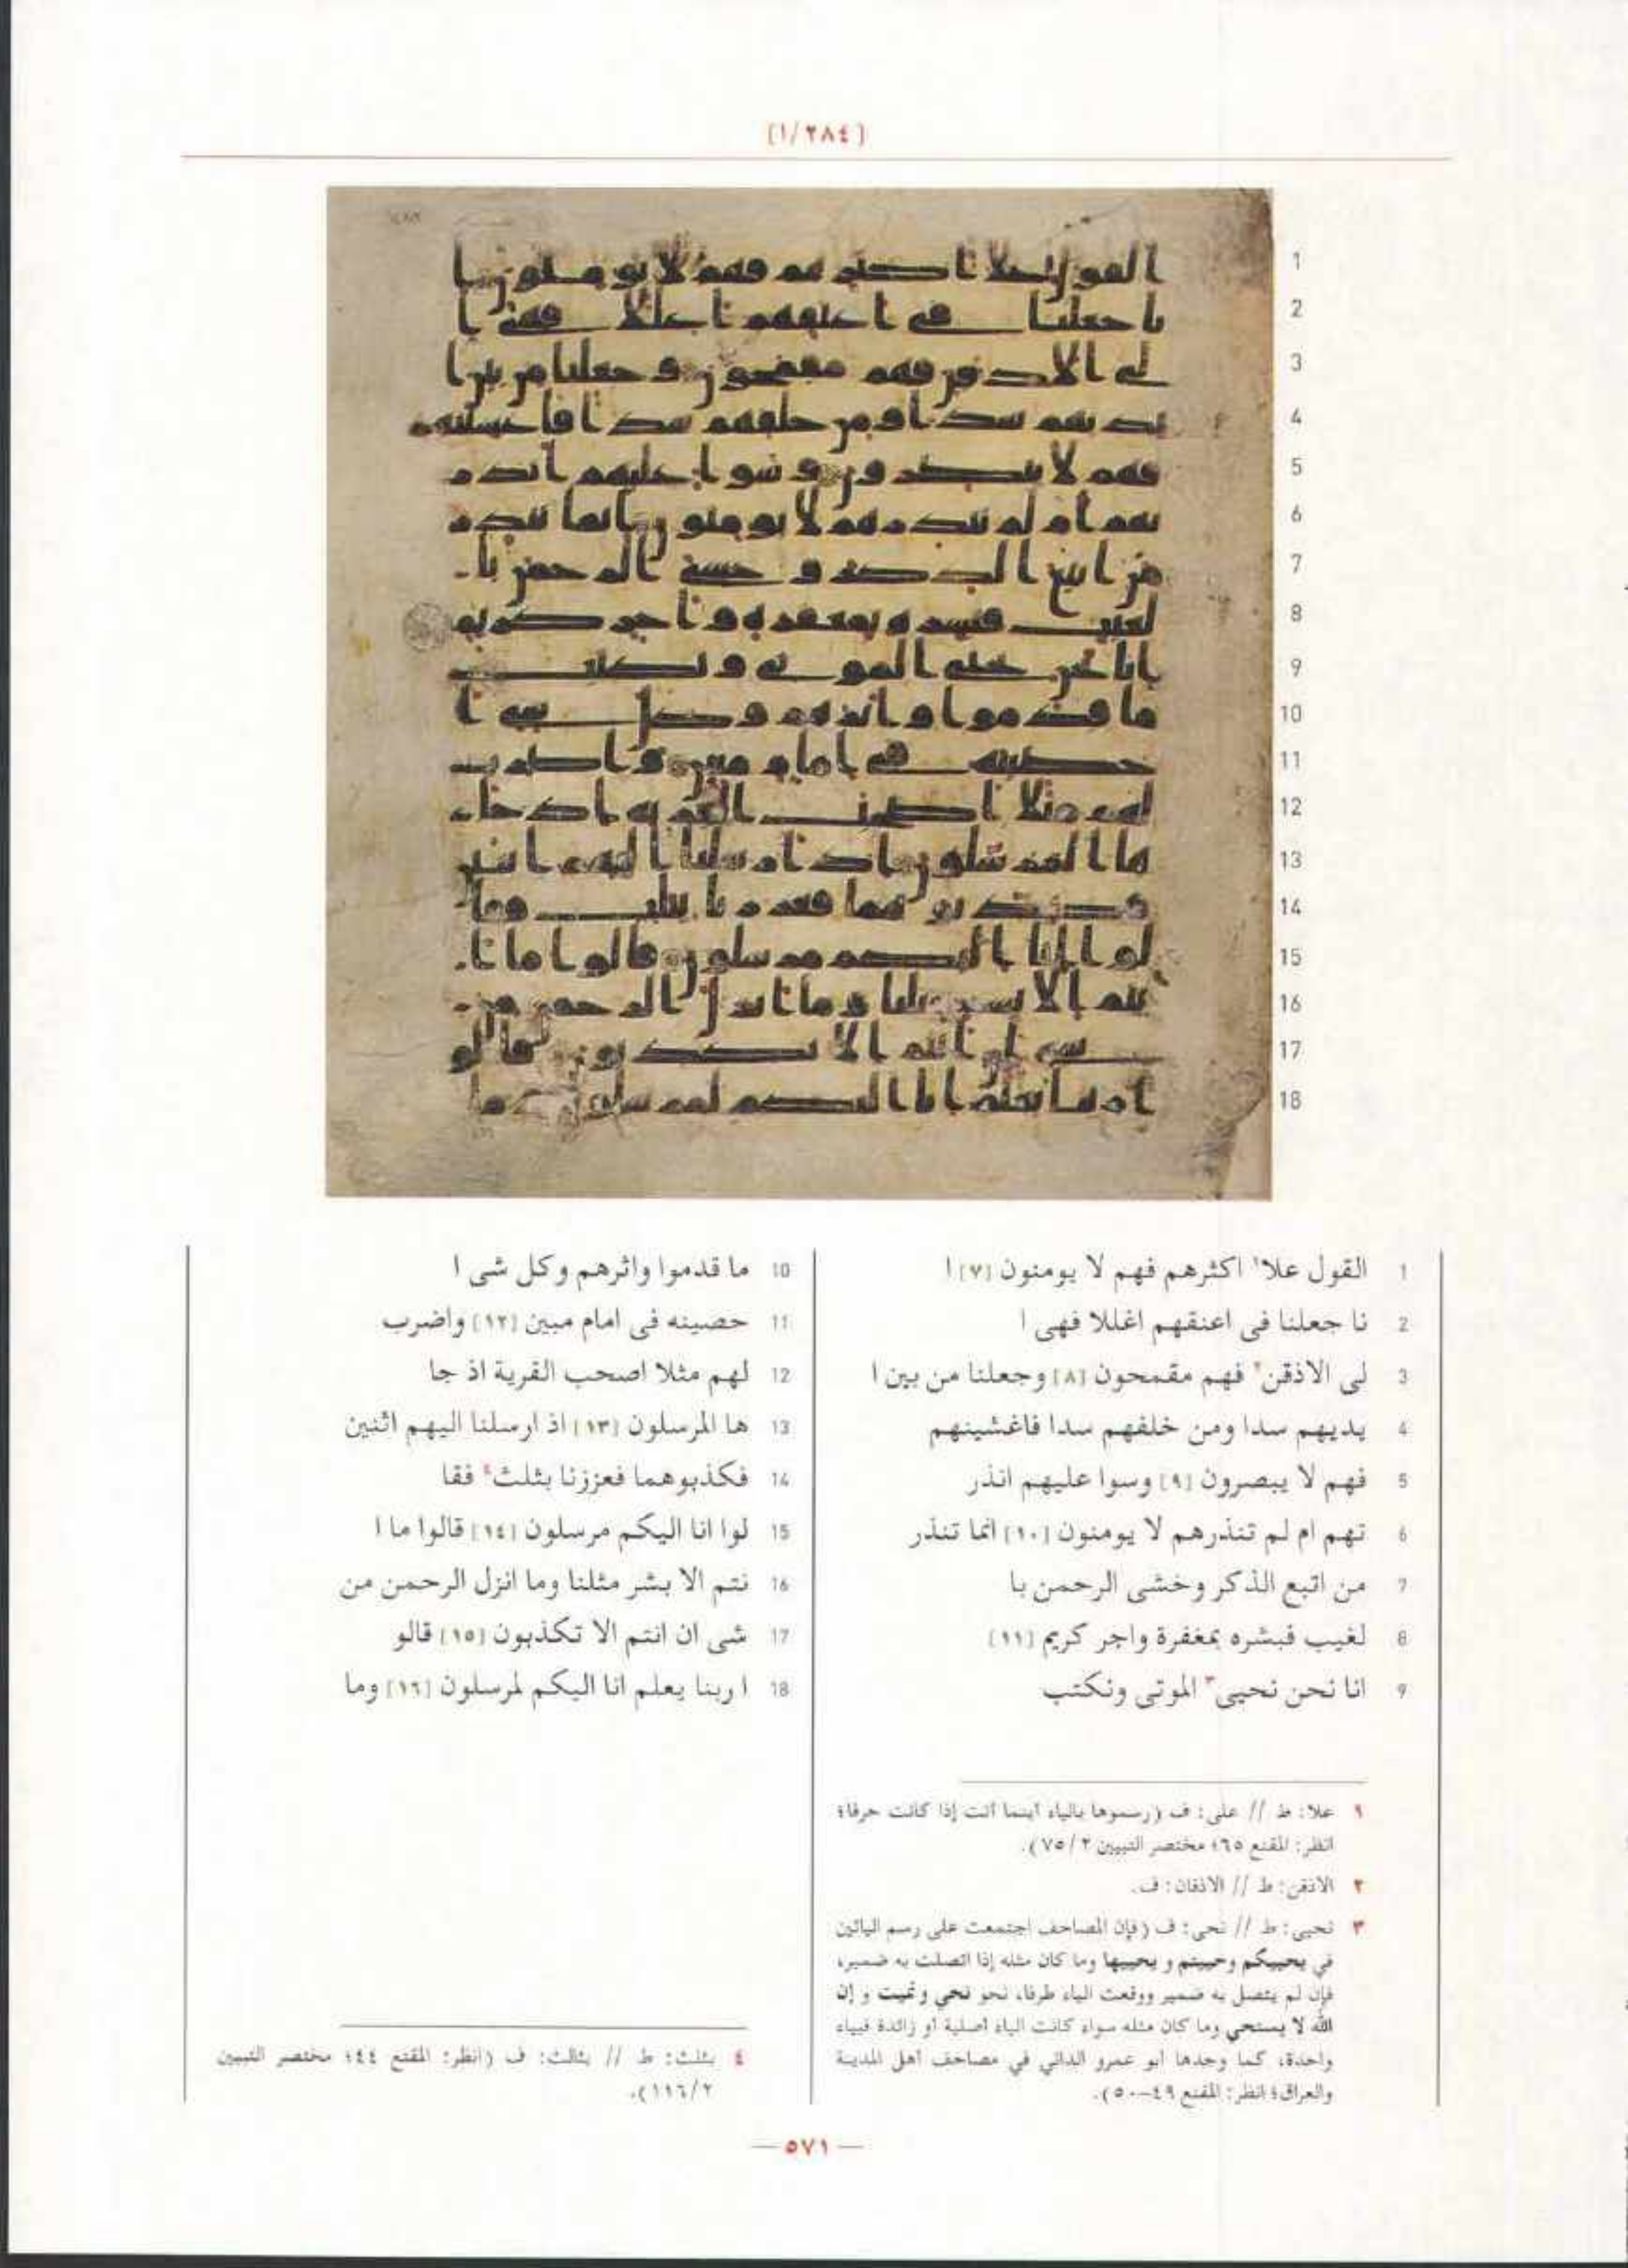 [١/٢٨٤]
1 القول علا١ اكثرهم فهم لا يومنون [٧] ا
2 نا جعلنا فى اعنقهم اغللا فهى ا
3 لى الاذقن٢ فهم مقمحون [٨] وجعلنا من بين ا
4 يديهم سدا ومن خلفهم سدا فاغشينهم
5 فهم لا يبصرون [٩] وسوا عليهم انذر
6 تهم ام لم تنذرهم لا يومنون [١٠] انما تنذر
7 من اتبع الذكر وخشى الرحمن با
8 لغيب فبشره بمغفرة واجر كريم [١١]
9 انا نحن نحيى٣ الموتى ونكتب
10 ما قدموا واثرهم وكل شى ا
11 حصينه فى امام مبين [١٢] واضرب
12 لهم مثلا اصحب القرية اذ جا
13 ها المرسلون [١٣] اذ ارسلنا اليهم اثنين
14 فكذبوهما فعززنا بثلث٤ فقا
15 لوا انا اليكم مرسلون [١٤] قالوا ما ا
16 نتم الا بشر مثلنا وما انزل الرحمن من
17 شى ان انتم الا تكذبون [١٥] قالو
18 ا ربنا يعلم انا اليكم لمرسلون [١٦] وما
١ علا: ط // على: ف (رسموها بالياء أينما أتت إذا كانت حرفا؛
انظر: المقنع ٦٥؛ مختصر التبيين ٧٥/٢).
٢ الاذقن: ط // الاذقان: ف.
٣ نحيى: ط // نحى: ف (فإن المصاحف اجتمعت على رسم اليائين
في يحييكم وحييتم و يحييها وما كان مثله إذا اتصلت به ضمير،
فإن لم يتصل به ضمير ووقعت الياء طرفا، نحو نحي ونميت و إن
الله لا يستحي وما كان مثله سواء كانت الياء أصلية أو زائدة فبياء
واحدة، كما وجدها أبو عمرو الداني في مصاحف أهل المدينة
والعراق؛ انظر: المقنع ٤٩-٥٠).
٤ بثلث: ط // بثالث: ف (انظر: المقنع ٤٤؛ مختصر التبيين
١١٦/٢).
— ٥٧١ —